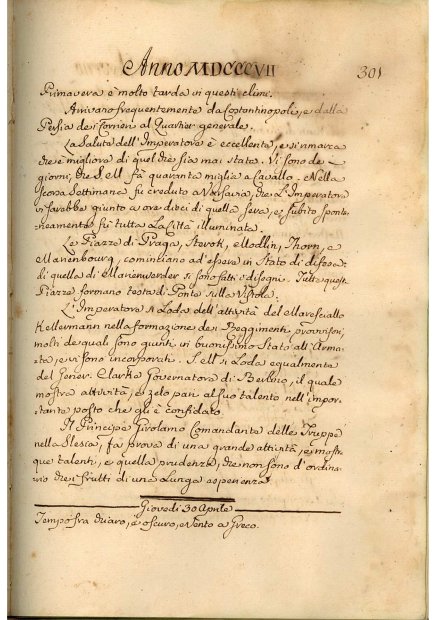 Anno MDCCCVII 301
Primavera è molto tarda in questi climi.
Arrivano frequentemente da Costantinopoli, e dalla
Persia dei Corrieri al Quartier generale.
La Saluta dell' Imperatore è eccellente, e si rimarca
che è migliore di quel che sia mai stata. Vi sono de
giorni, che S.e M.tà fà quaranta miglia a Cavallo. Nella
scorsa Settimana fu creduto a Varsavia, che L'Imperatore
vi sarebbe giunto a ore dieci di quella sera, e subito sponta-
neamente fù tutta La Città illuminata.
Le Piazze di Praga, Sierok, Modlin, Thorn, e
Marienbourg, cominciano ad essere in Stato di difesa:
di quella di Marienwerder si sono fatti i disegni. Tutte queste
Piazze formano testa di Ponte sulla Vistola.
L'Imperatore si Loda dell' attività del Maresciallo
Kellermann nella formazione dei Reggimenti provvisori
molti de quali sono giunti in buonissimo Stato all' Arma-
ta, e vi sono incorporati. S.e M.tà si Loda equalmente
del Gener. Clarke Governatore di Berlino, il quale
mostra attività, e zelo pari al suo talento nell' impor-
tante posto che gli è confidato.
Il Principe Girolamo Comandante delle Truppe
nella Slesia, fà prova di una grande attività, e mostra
que talenti, e quella prudenza, che non sono d'ordina-
rio che i frutti di una Lunga esperienza
Giovedì 30 Aprile
Tempo fra chiaro, e oscuro, e Vento a Greco.